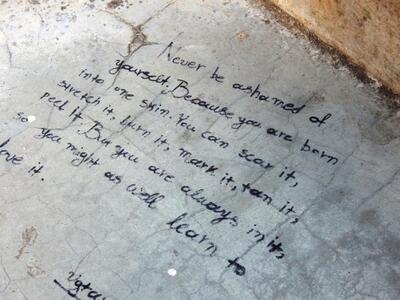 Never be ashamed of
yourself. Because you are born
into one skin. You can scar it,
stretch it, burn it, mark it, tan it,
peel it. But you are always in it,
so you might as well learn to
love it.